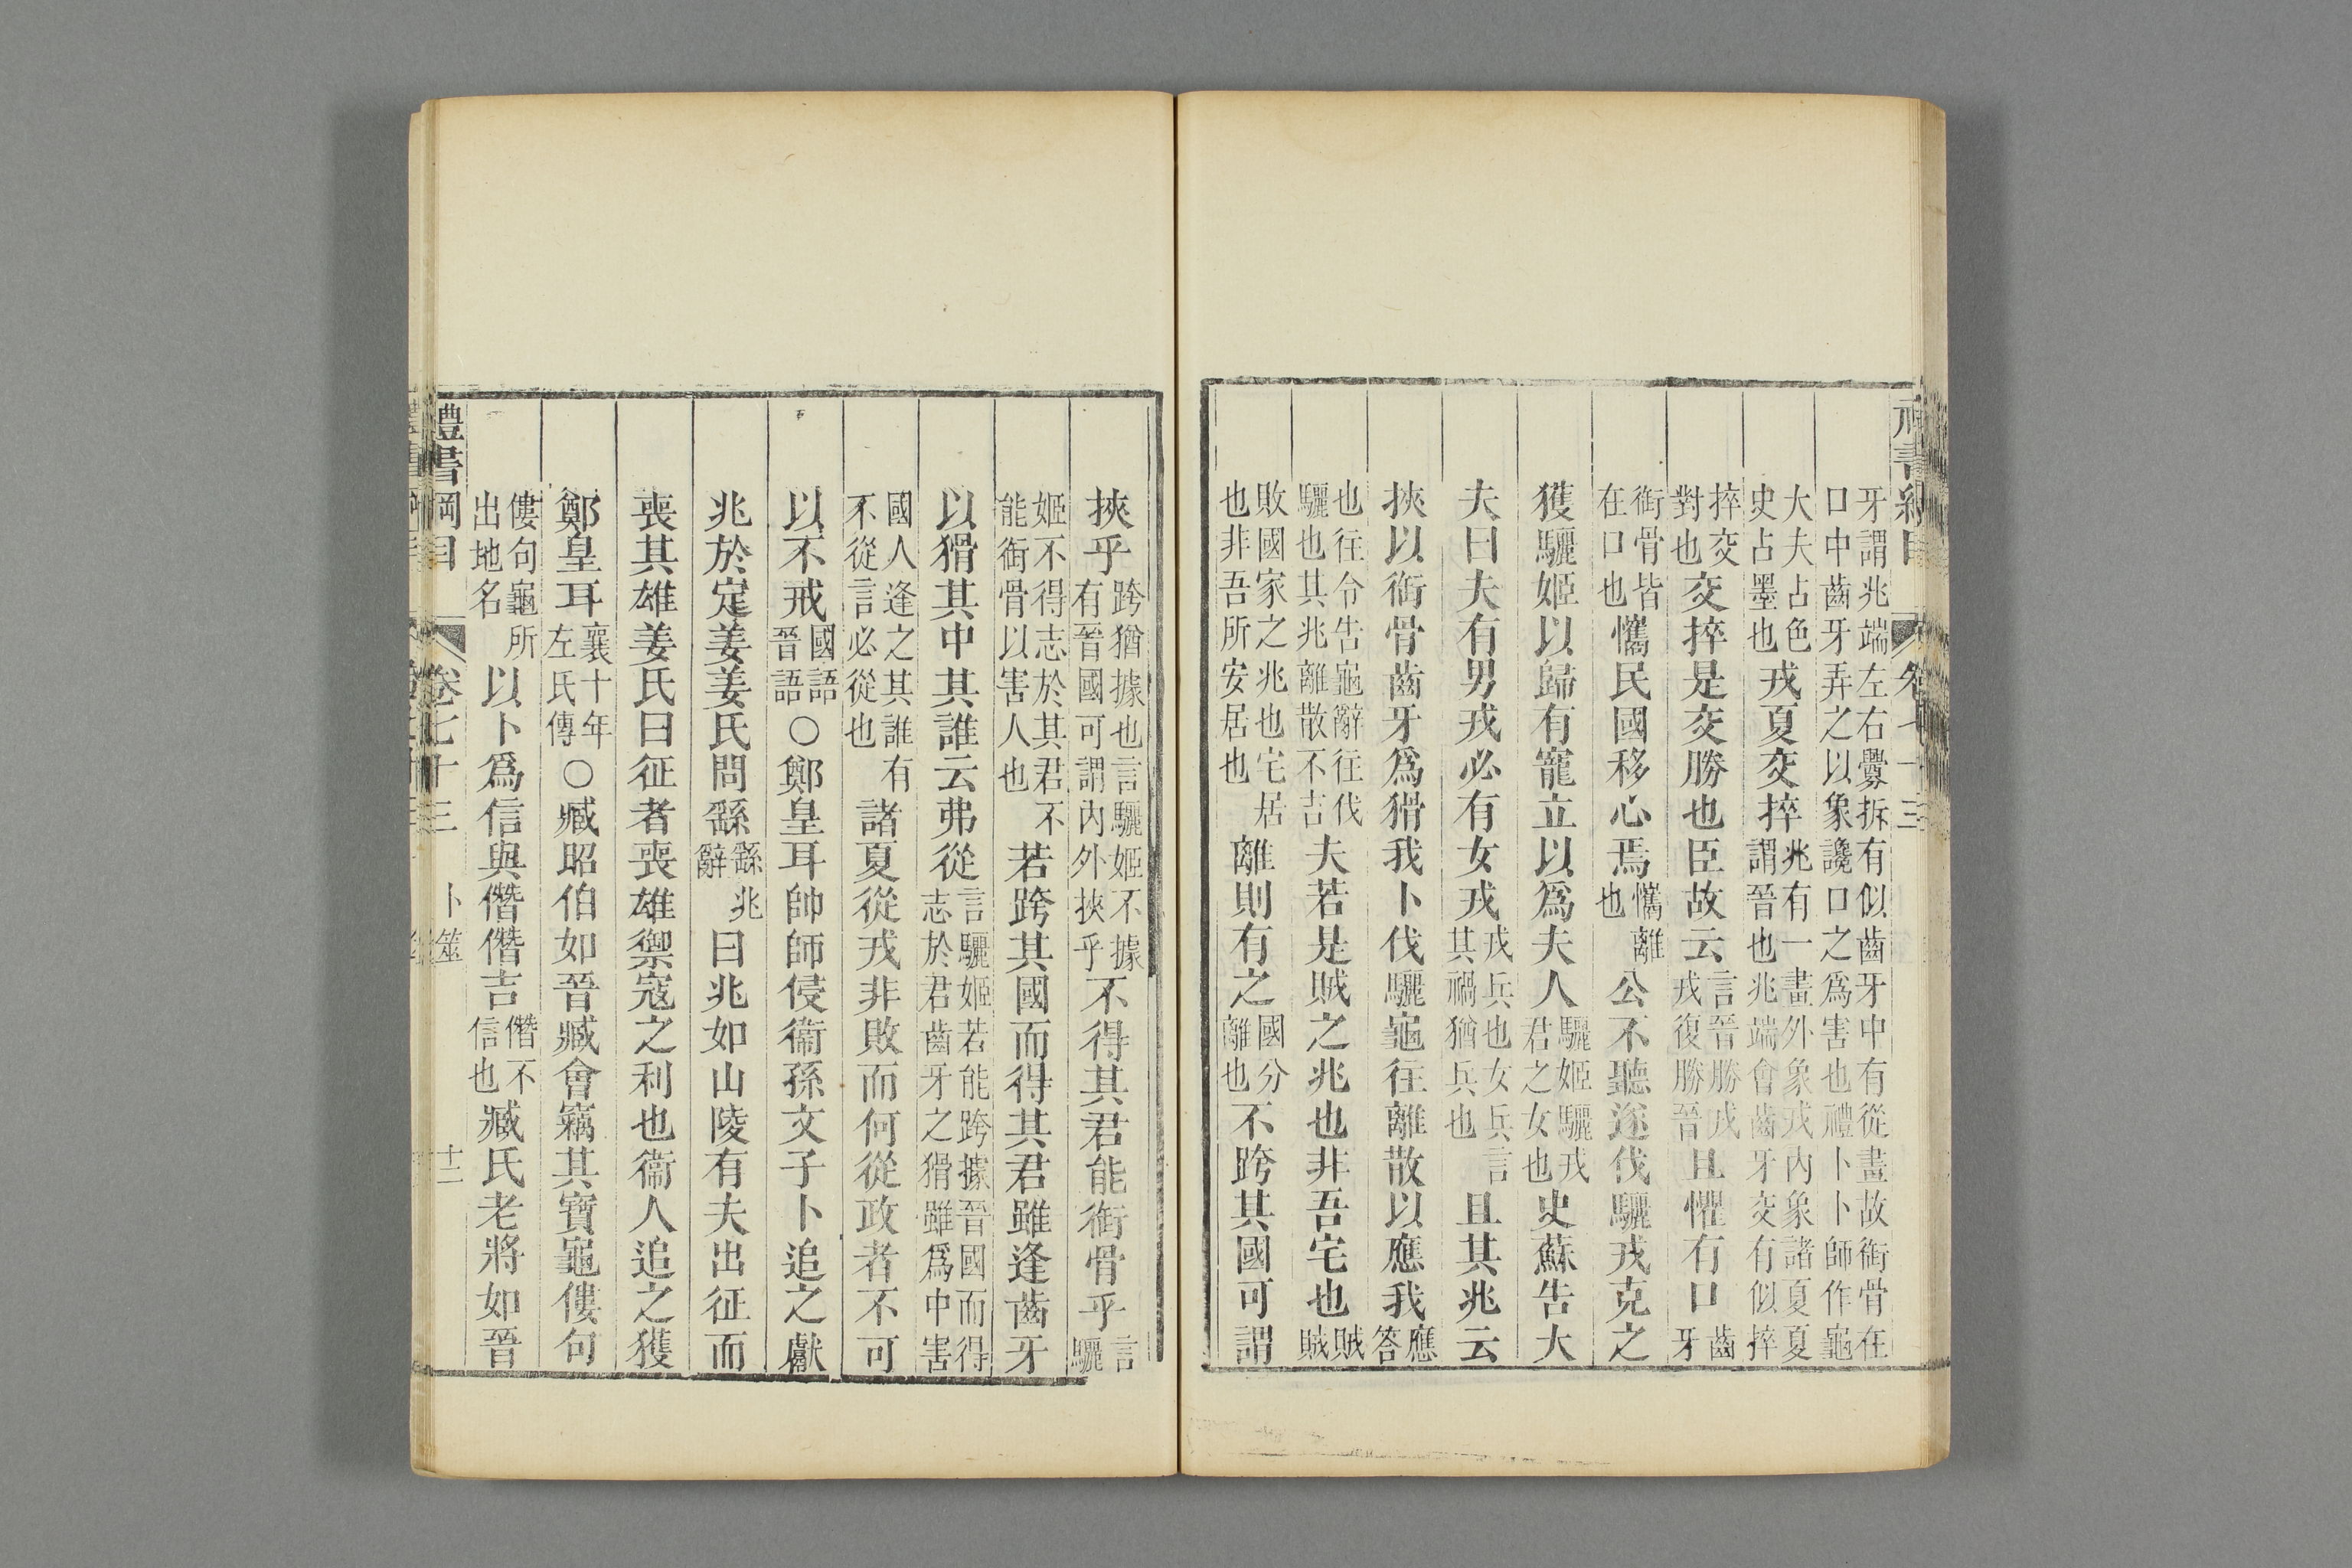 禮書綱目 卷七十三
牙謂兆端左右釁拆有似齒牙中有從畫故銜骨在
口中齒牙弄之以象讒口之爲害也禮卜卜師作龜
大夫占色史占墨也戎夏交捽兆有一畫外象戎內象諸夏夏謂晉也兆端會齒牙交有似捽
捽交對也交捽是交勝也臣故云言晉勝戎戎復勝晉且懼有口齒牙
銜骨皆在口也㩗民國移心焉㩗離也公不聽遂伐驪戎克之
獲驪姬以歸有寵立以爲夫人驪姬驪戎君之女也史蘇告大
夫曰夫有男戎必有女戎戎兵也女兵言其禍猶兵也且其兆云
挾以銜骨齒牙爲猾我卜伐驪龜往離散以應我應答
也往令告龜辭往伐驪也其兆離散不吉夫若是賊之兆也非吾宅也賊賊
敗國家之兆也宅居也非吾所安居也離則有之國分離也不跨其國可謂
挾乎跨猶據也言驪姬不據有晉國可謂內外挾乎不得其君能銜骨乎言驪
姬不得志於其君不能銜骨以害人也若跨其國而得其君雖逢齒牙
以猾其中其誰云弗從言驪姬若能跨據晉國而得志於君齒牙之猾雖爲中害
國人逢之其誰有不從言必從也諸夏從戎非敗而何從政者不可
以不戒國語晉語○鄭皇耳帥師侵衞孫文子卜追之獻
兆於定姜姜氏問繇繇兆辭曰兆如山陵有夫出征而
喪其雄姜氏曰征者喪雄禦寇之利也衞人追之獲
鄭皇耳襄十年左氏傳○臧昭伯如晉臧會竊其寶龜僂句
僂句龜所出地名以卜爲信與僭僭吉僭不信也臧氏老將如晉
禮書綱目 卷七十三 卜筮 十二